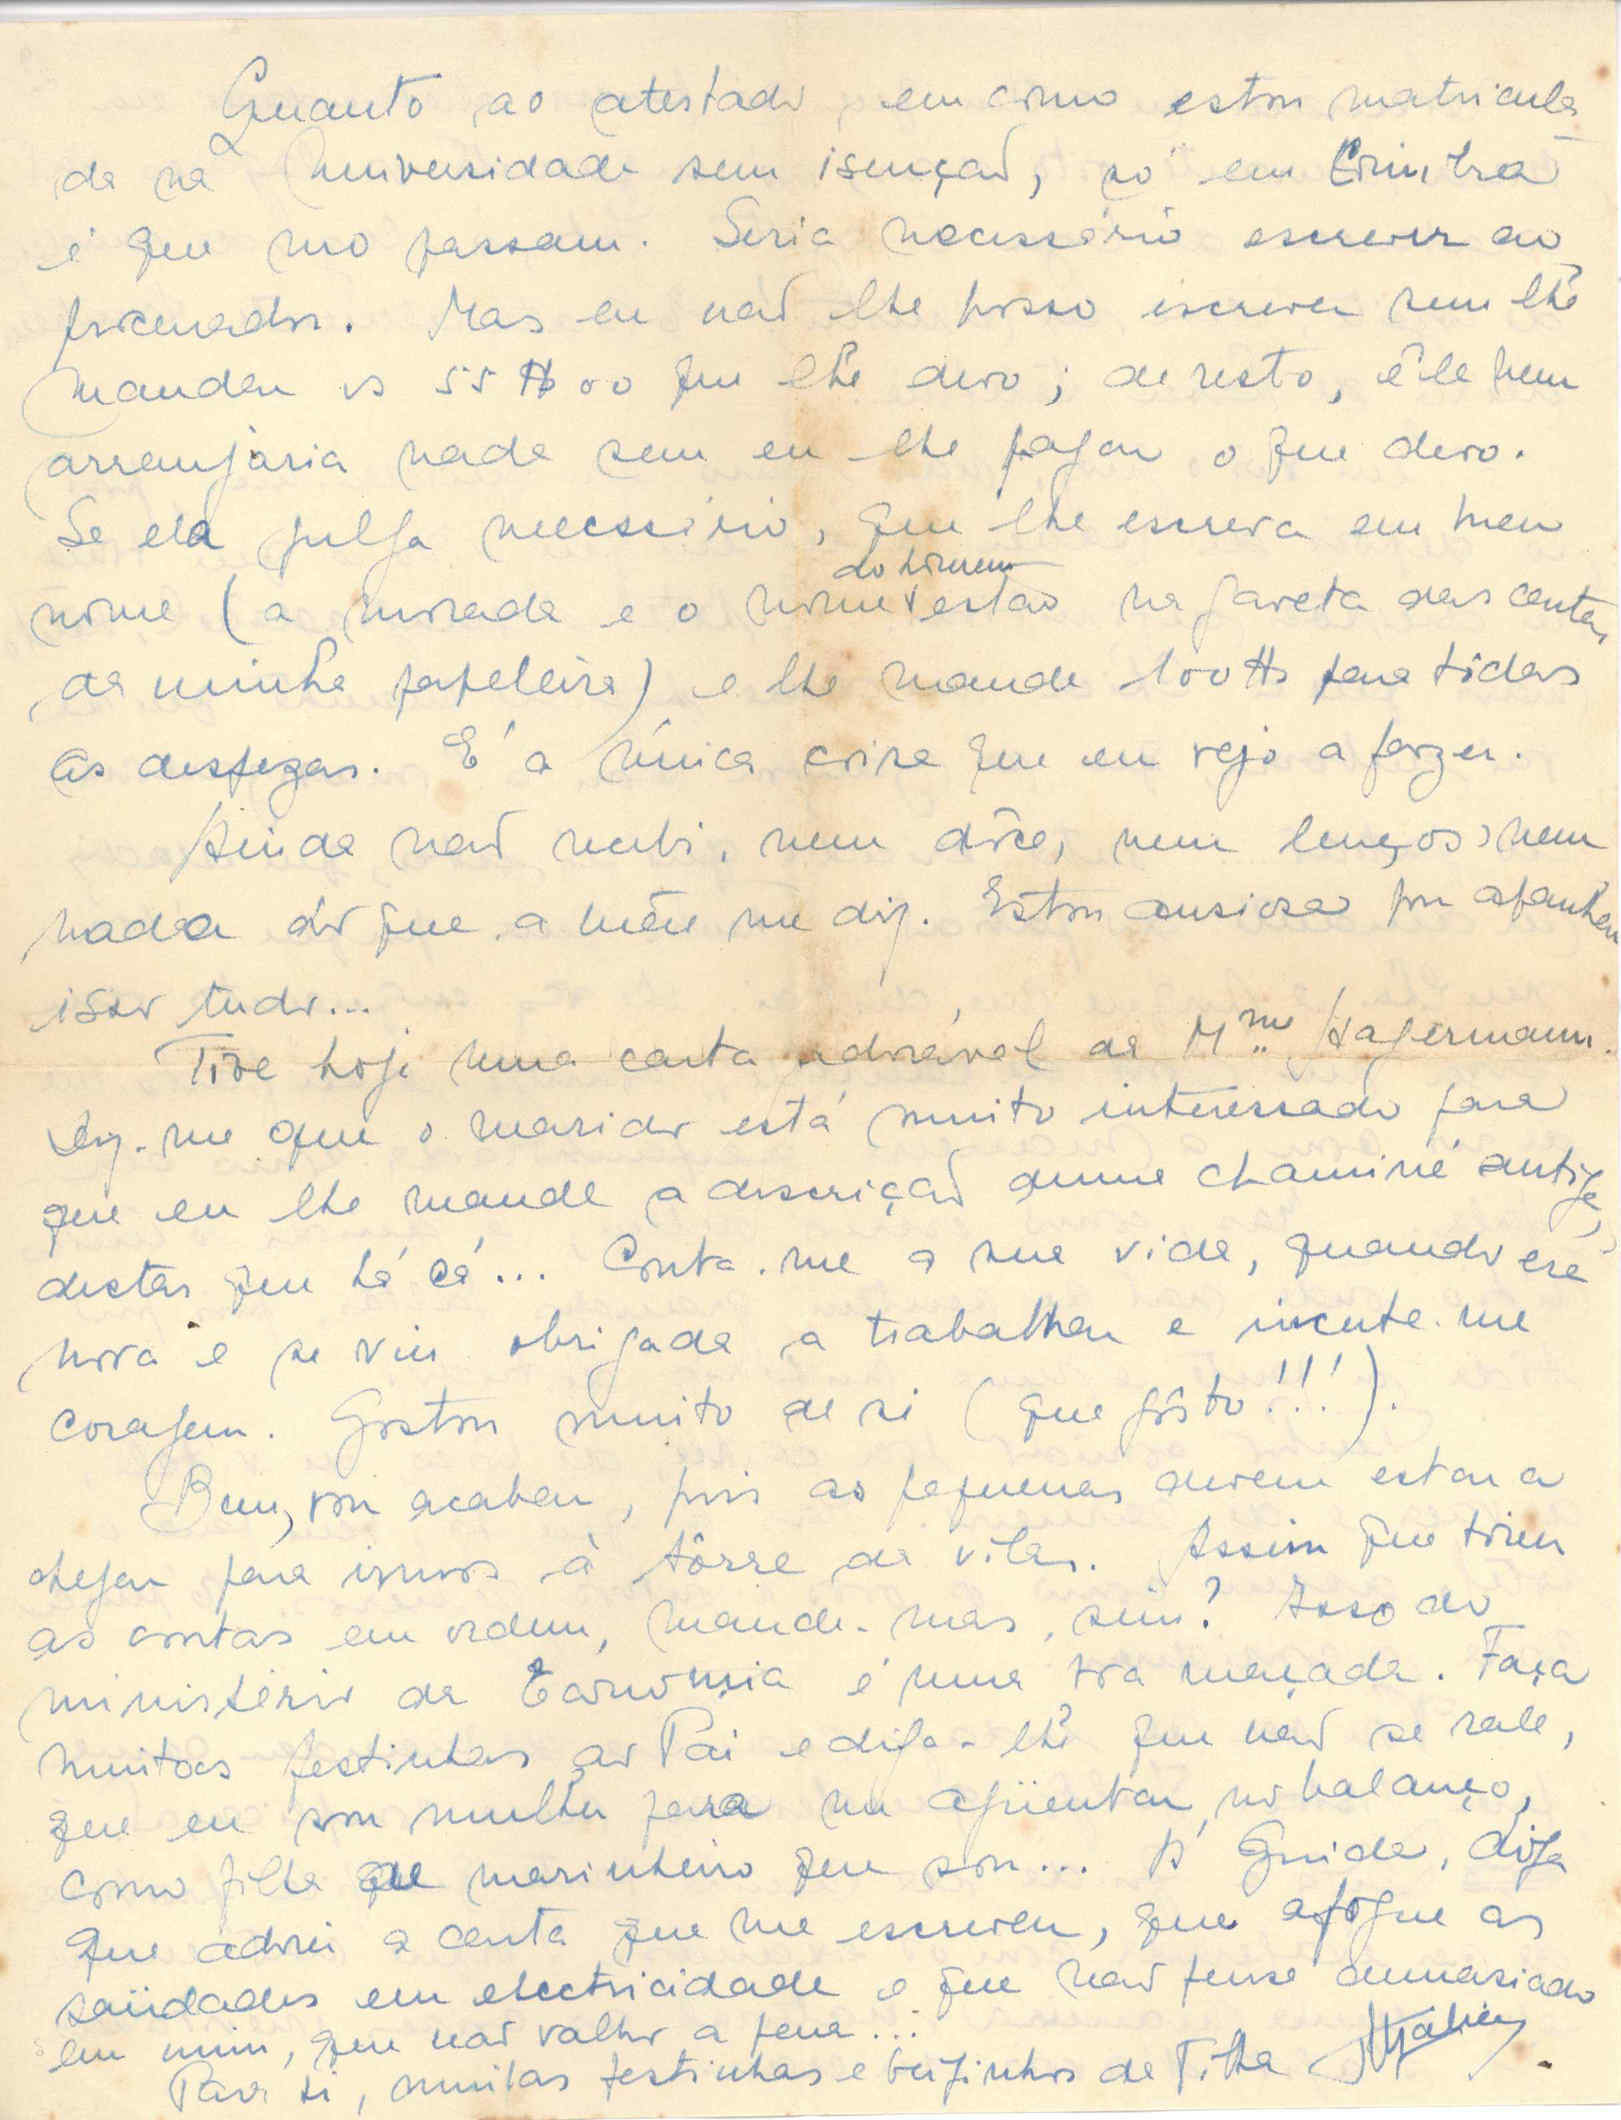 Quanto ao atestado em como estou matricula
da na Universidade sem isenção, só em Coimbra
é que mo passam. Seria necessário escrever ao
procurador. Mas eu não lhe posso escrever sem lhe
mandar os 55$00 que lhe devo; de resto, êle nem
arranjaria nada sem eu lhe pagar o que devo.
Se ela julga necessário, que lhe escreva em meu
nome (a morada e o nome do homem estão na gaveta das cartas,
da minha papeleira) e lhe mande 100$ para tôdas
as despezas. É a única coisa que eu vejo a fazer.
Ainda não recebi, nem dôce, nem lenços, nem
nada do que a Mãe me diz. Estou ansiosa por apanhar
isso tudo...
Tive hoje uma carta adorável de Mme Hagermann.
Diz-me que o marido está muito interessado para
que eu lhe mande a descrição duma chaminé antiga,
destas que há cá... Conta-me a sua vida, quando era
nova e se viu obrigada a trabalhar e incute-me
coragem. Gostou muito de si (que gôsto!!!).
Bem, vou acabar, pois as pequenas devem estar a
chegar para irmos à tôrre de vilar. Assim que tiver
as contas em ordem, mande-mas, sim? Isso do
ministério da Economia é uma boa maçada. Faça
muitas festinhas ao Pai e diga-lhe que não se rale,
que eu sou mulher para me agüentar no balanço,
como filha de marinheiro que sou... À Guida, diga
que adorei a carta que me escreveu, que afogue as
saüdades em electricidade e que não pense demasiado
em mim, que não valho a pena...
Para si, muitas festinhas e beijinhos da Filha